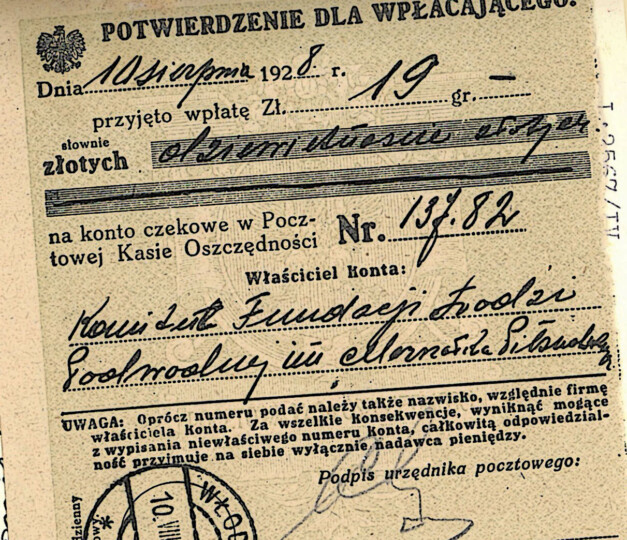 POTWIERDZENIE DLA WPŁACAJĄCEGO.
Dnia 10 sierpnia 1928 r.
przyjęto wpłatę Zł. 19 gr. —
słownie
złotych dziewiętnaście złotych
na konto czekowe w Pocz-
towej Kasie Oszczędności Nr. 137.82
Właściciel konta:
Komitet Fundacji Łodzi
Podwodnej im Marszałka Piłsudskiego
UWAGA: Oprócz numeru podać należy także nazwisko, względnie firmę
właściciela konta. Za wszelkie konsekwencje, wyniknąć mogące
z wypisania niewłaściwego numeru konta, całkowitą odpowiedzial-
ność przyjmuje na siebie wyłącznie nadawca pieniędzy.
Podpis urzędnika pocztowego:
10.VIII
WŁOD
dzienny